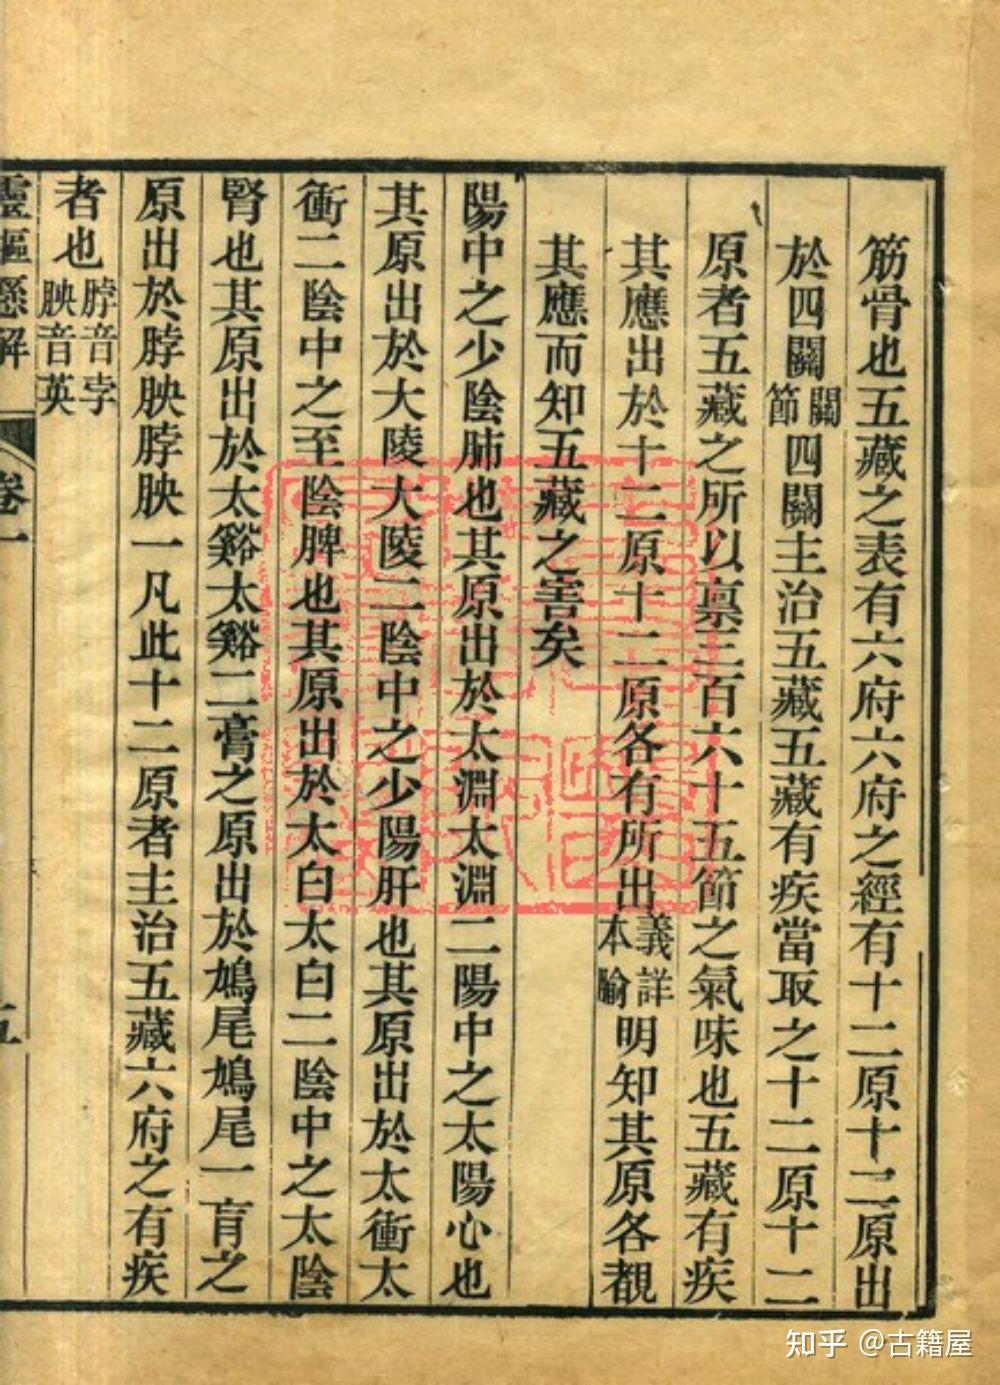 筋骨也五藏之表有六府六府之經有十二原十二原出
於四關關節四關主治五藏五藏有疾當取之十二原十二
原者五藏之所以禀三百六十五節之氣味也五藏有疾
其應出於十二原十二原各有所出義詳本腧明知其原各覩
其應而知五藏之害矣
陽中之少陰肺也其原出於太淵太淵二陽中之太陽心也
其原出於大陵大陵二陰中之少陽肝也其原出於太衝太
衝二陰中之至陰脾也其原出於太白太白二陰中之太陰
腎也其原出於太谿太谿二膏之原出於鳩尾鳩尾一肓之
原出於脖胦脖胦一凡此十二原者主治五藏六府之有疾
者也脖音孛胦音英
靈樞懸解
卷一
五
知乎 @古籍屋